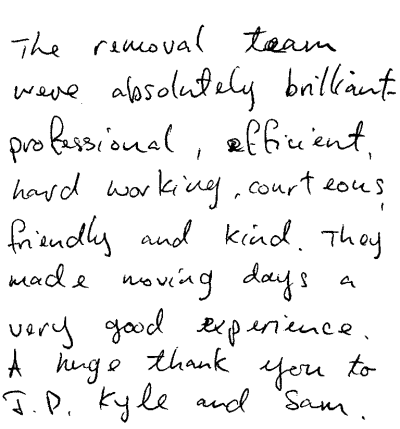 The removal team
were absolutely brilliant-
professional, efficient,
hard working, courteous,
friendly and kind. They
made moving days a
very good experience.
A huge thank you to
J.D. Kyle and Sam.